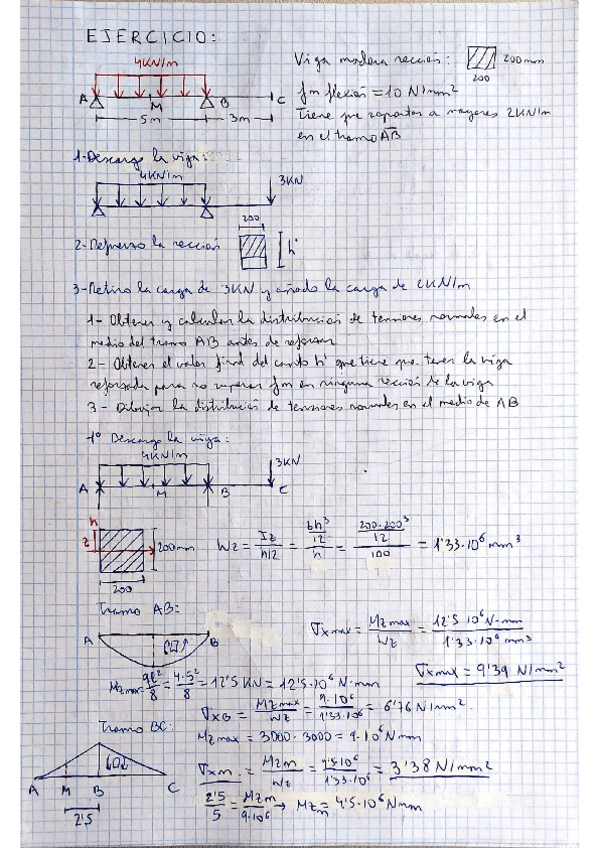 EJERCICIO:
4KN/m
A M B C
5m 3m
Viga madera sección: 200mm
200
fm flexión = 10 N/mm²
Tiene que soportar a mayores 2KN/m
en el tramo AB
1-Descargo la viga:
4KN/m
3KN
200
2-Refuerzo la sección h'
3-Retiro la carga de 3KN y añado la carga de 2KN/m
1- Obtener y calcular la distribución de tensiones normales en el
medio del tramo AB antes de reforzar
2- Obtener el valor final del canto h' que tiene que tener la viga
reforzada para no superar fm en ninguna sección de la viga
3- Dibujar la distribució de tensiones normales en el medio de AB
1º Descargo la viga:
4KN/m
3KN
A M B C
h
z
200mm
200
Wz = Iz/(h/2) = (bh³/12)/h = (200·200³/12)/100 = 1'33·10⁶ mm³
Tramo AB:
A B
σxmax = Mzmax/Wz = 12'5·10⁶N·mm/1'33·10⁶mm³
σxmax = 9'39 N/mm²
Mzmax = ql²/8 = 4·5²/8 = 12'5 KN = 12'5·10⁶ N·mm
σxB = Mzmax/Wz = 9·10⁶/1'33·10⁶ = 6'76 N/mm²
Tramo BC:
Mzmax = 3000·3000 = 9·10⁶ Nmm
A M B C
2'5
σxm = Mzm/Wz = 4'5·10⁶/1'33·10⁶ = 3'38 N/mm²
2'5/5 = Mzm/9·10⁶ → Mzm = 4'5·10⁶ Nmm